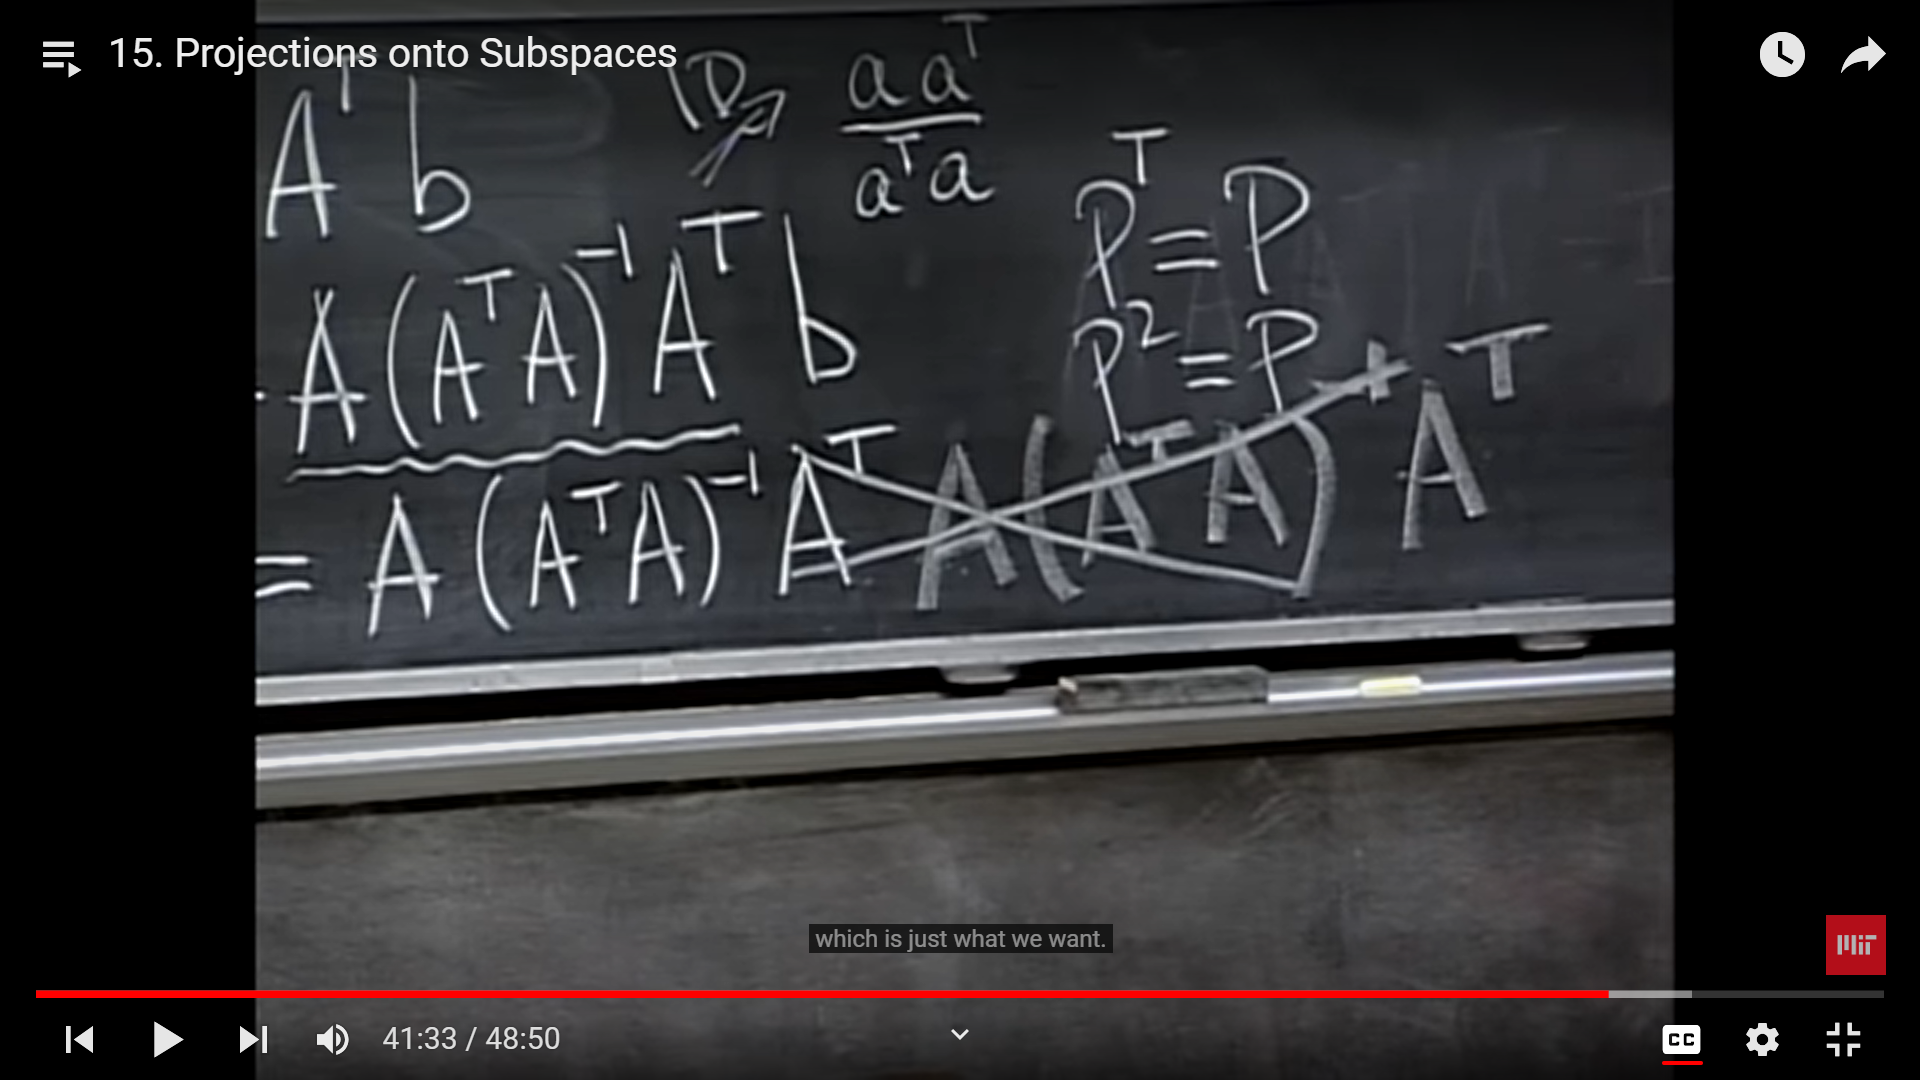 15. Projections onto Subspaces
Aᵀb
1D
aaᵀ
aᵀa
Pᵀ=P
A(AᵀA)⁻¹Aᵀb
P²=P
= A(AᵀA)⁻¹Aᵀ A(AᵀA)⁻¹Aᵀ
which is just what we want.
MIT
41:33 / 48:50
CC